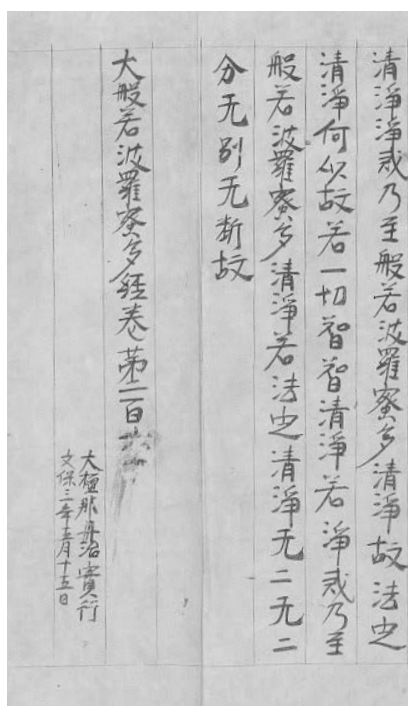 清淨淨戒乃至般若波羅蜜多清淨故法定
清淨何以故若一切智智清淨若淨戒乃至
般若波羅蜜多清淨若法定清淨无二无二
分无別无斷故
大般若波羅蜜多經卷第二百六
大檀那丹治實行
文保三年五月十五日